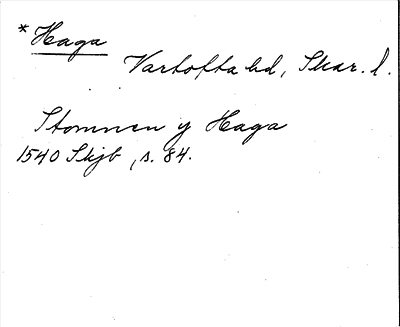 * Haga
Vartofta hd, Skar. l.
Stommen y Haga
1540 Skjb, s. 84.